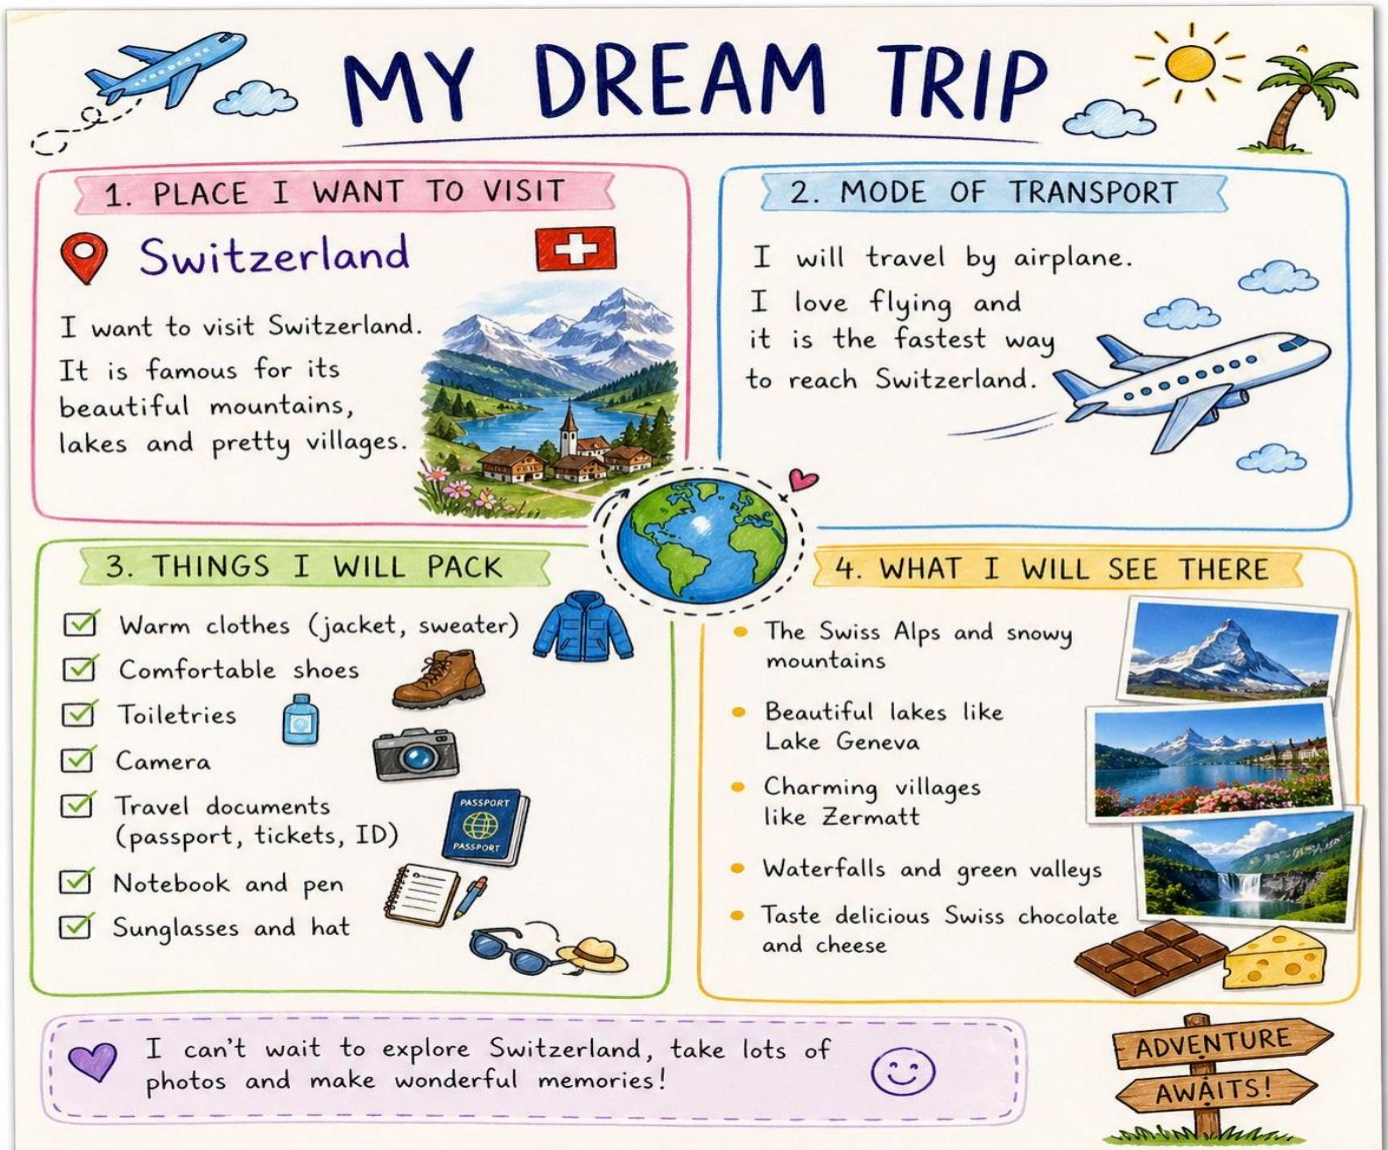 MY DREAM TRIP
1. PLACE I WANT TO VISIT
Switzerland
I want to visit Switzerland.
It is famous for its
beautiful mountains,
lakes and pretty villages.
2. MODE OF TRANSPORT
I will travel by airplane.
I love flying and
it is the fastest way
to reach Switzerland.
3. THINGS I WILL PACK
Warm clothes (jacket, sweater)
Comfortable shoes
Toiletries
Camera
Travel documents
(passport, tickets, ID)
PASSPORT
PASSPORT
Notebook and pen
Sunglasses and hat
4. WHAT I WILL SEE THERE
The Swiss Alps and snowy
mountains
Beautiful lakes like
Lake Geneva
Charming villages
like Zermatt
Waterfalls and green valleys
Taste delicious Swiss chocolate
and cheese
I can't wait to explore Switzerland, take lots of
photos and make wonderful memories!
ADVENTURE
AWAITS!